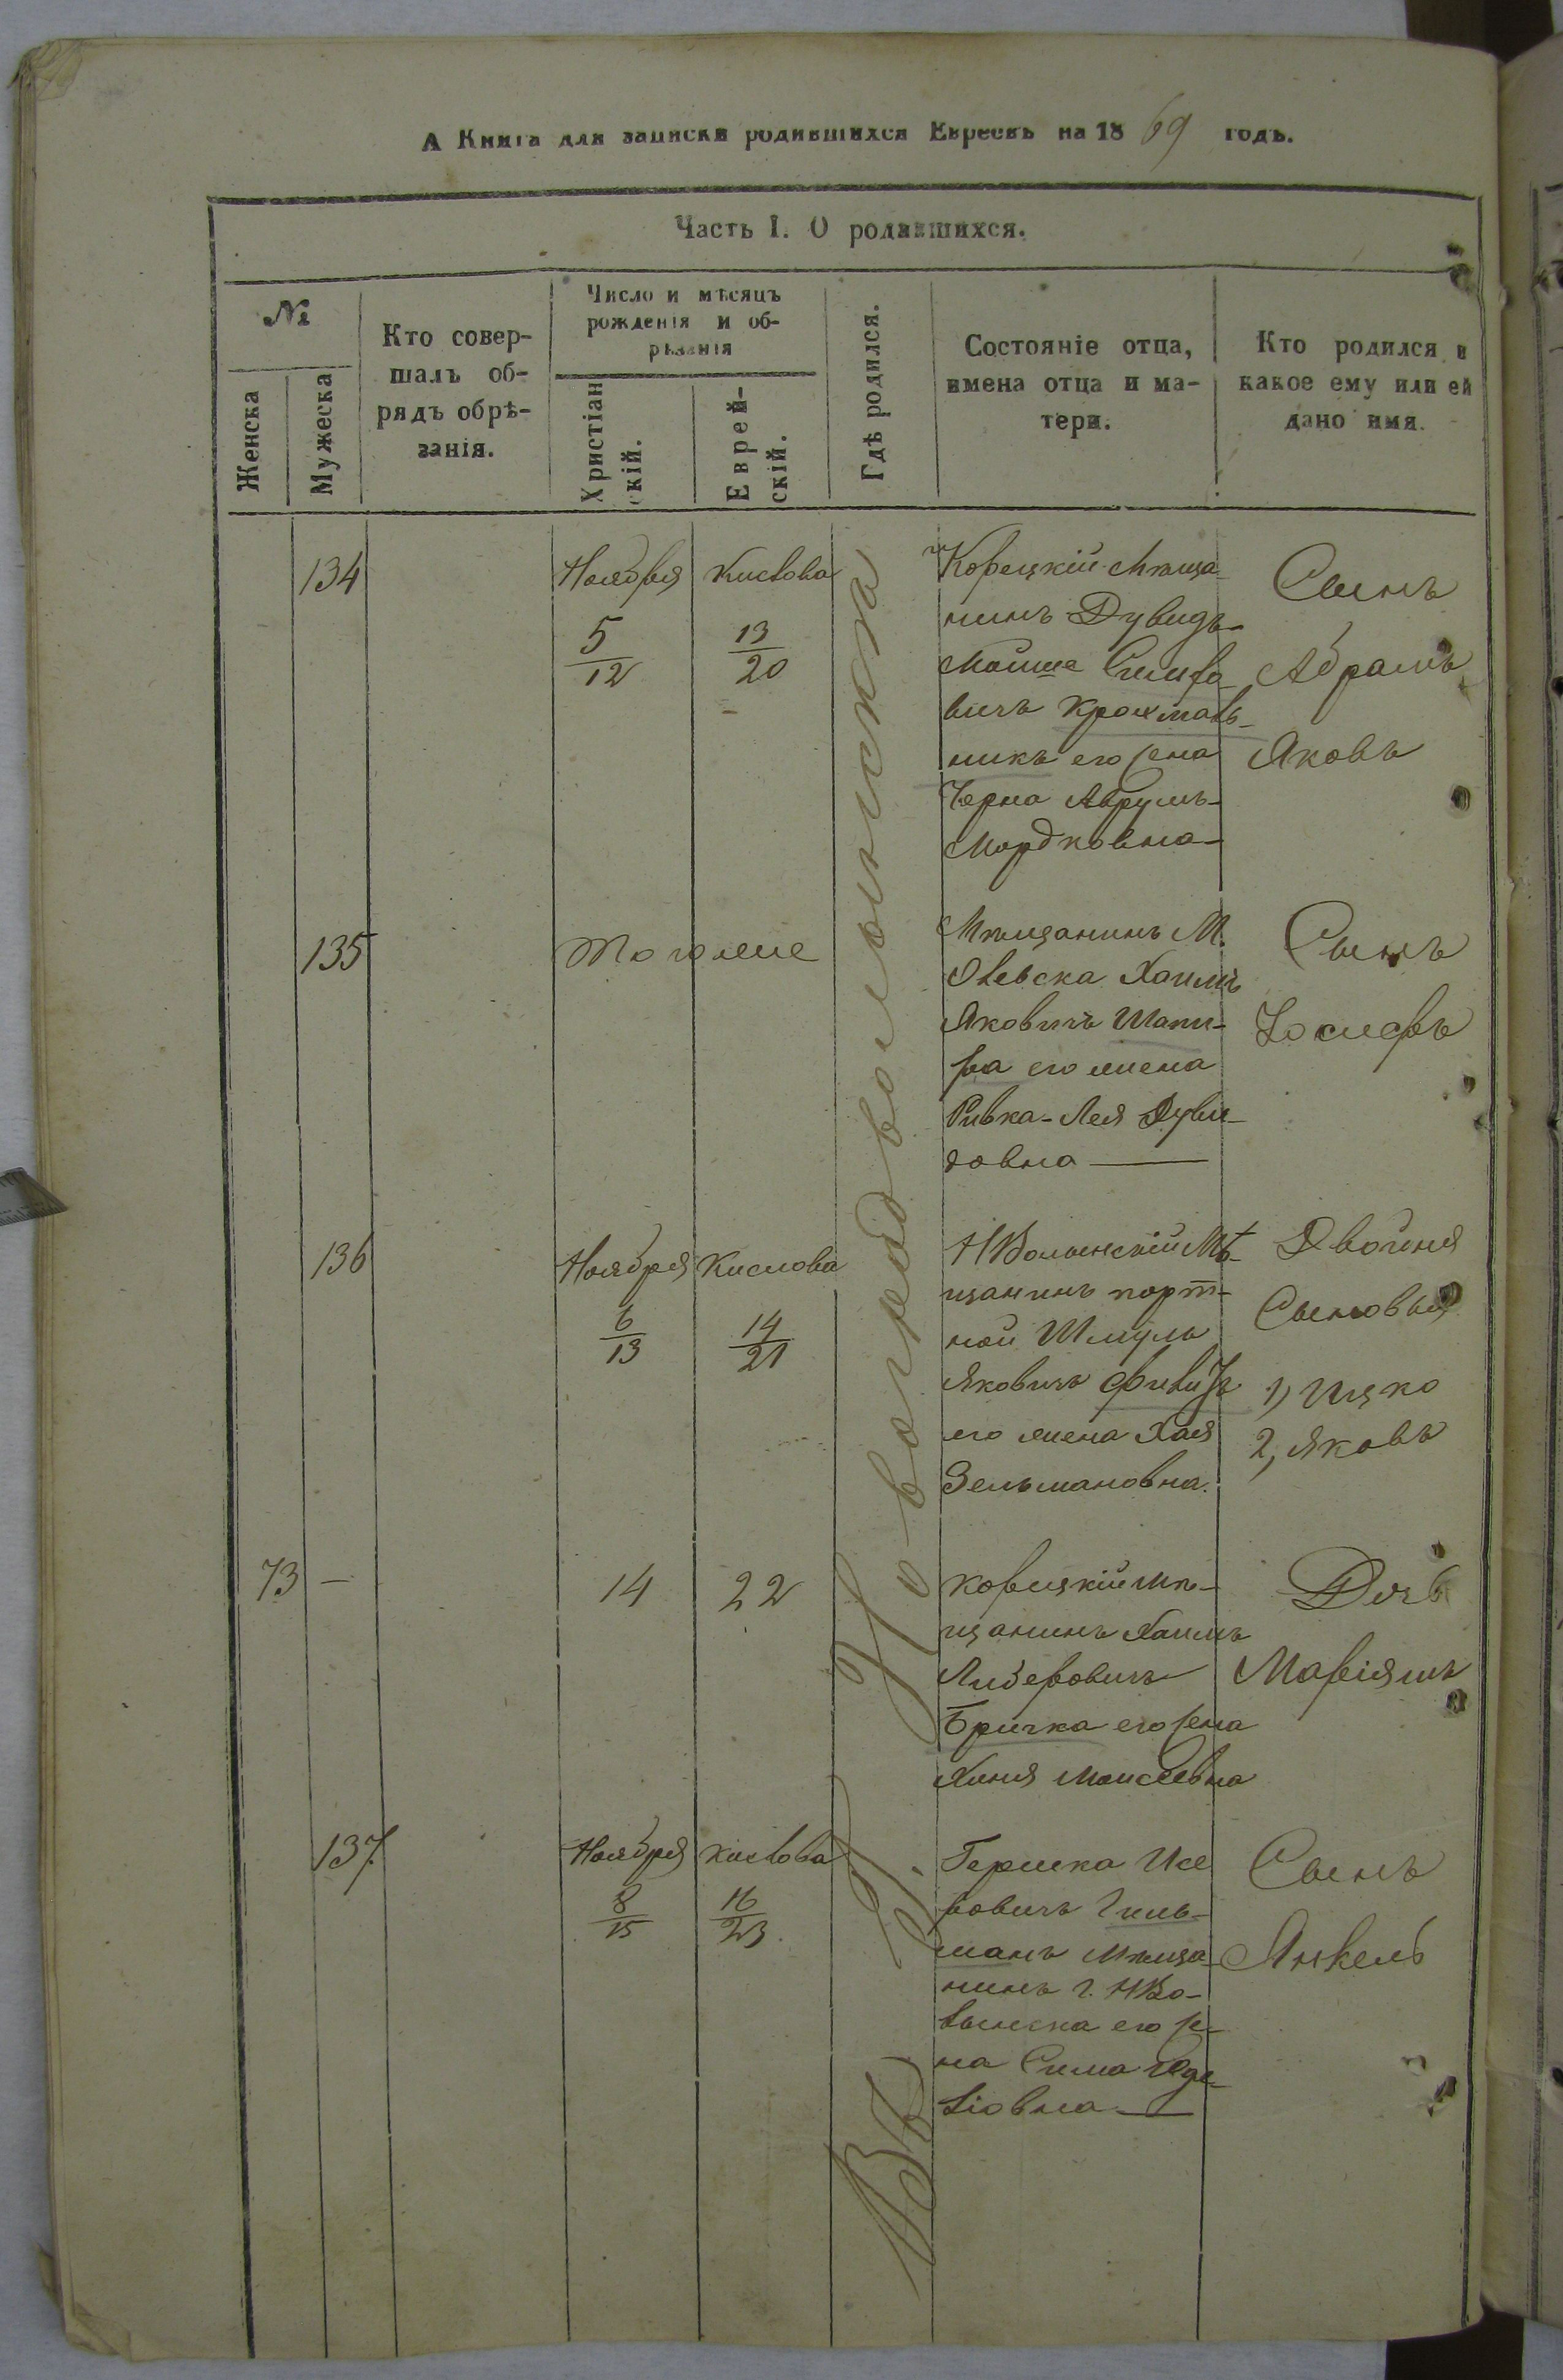 А Книга для записки родившихся Евреевъ на 1869 годъ.
Часть I. О родившихся.
№
Женска
Мужеска
Кто совер-
шалъ об-
рядъ обрѣ-
занія.
Число и мѣсяцъ
рожденія и об-
рѣзанія
Христіан
скій.
Еврей-
скій.
Гдѣ родился.
Состояніе отца,
имена отца и ма-
тери.
Кто родился и
какое ему или ей
дано имя.
Въ г. Новоградволынска
134
Ноября
5
12
Кислова
13
20
Корецкій Мѣща-
нинъ Дувидъ-
Мойше
вичъ Крохмаль-
никъ его жена
Черна Аврумъ-
Мордковна-
Сынъ
Абрамъ
Яковъ
135
Тогоже
Мѣщанинъ М.
Олевска Хаимъ
Яковичъ Шапи-
ра его жена
Ривка-Лея Дуви-
довна
Сынъ
Іосифъ
136
Ноября
6
13
Кислова
14
21
НВолынскій Мѣ-
щанинъ порт-
ной Шмуль
Яковичъ
его жена Хая
Зельмановна.
Двойня
Сыновья
1, Ицко
2, Яковъ
73 —
14
22
Корецкій Мѣ-
щанинъ Хаимъ
Либеровичъ
Бричка его жена
Хиня Моисеевна
Дочь
Маріямъ
137
Ноября
8
15
Кислова
16
23
Гершка Исе
ровичъ Гиль-
манъ Мѣща-
нинъ г. НВо-
лынска его же-
на Сима Геда-
ліовна
Сынъ
Янкель